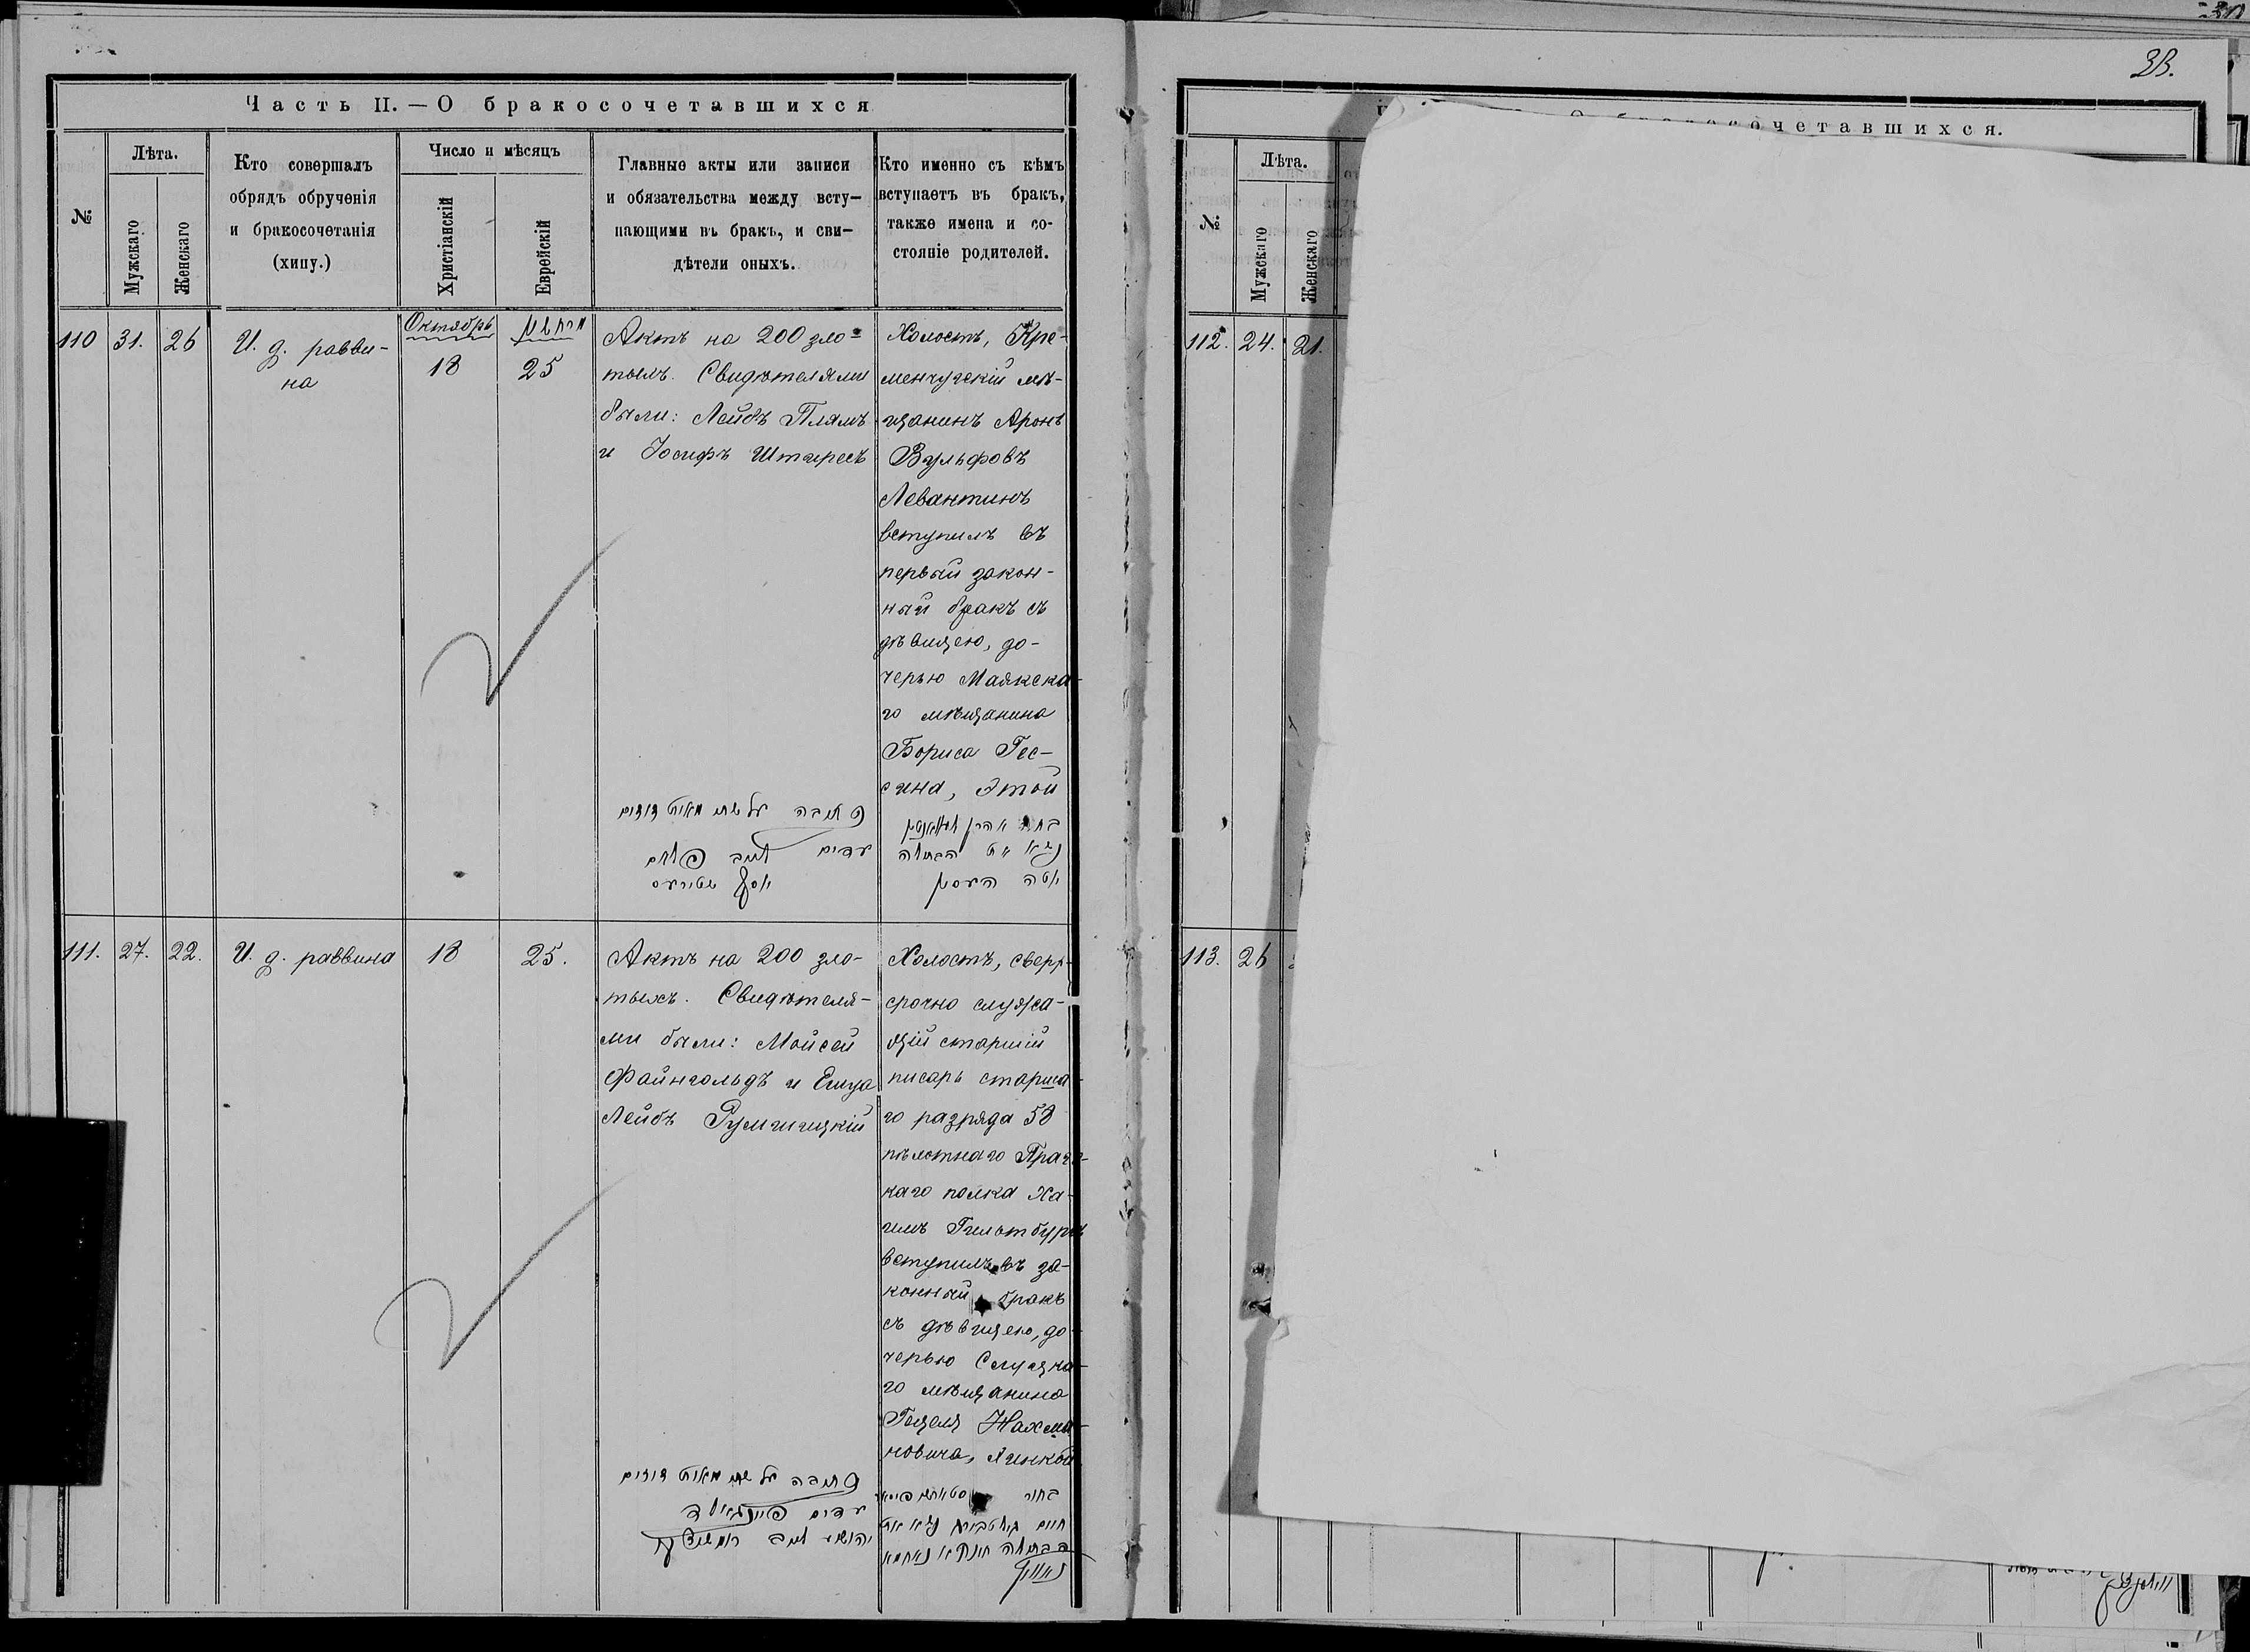 Часть II. — О бракосочетавшихся
№
Лѣта.
Мужскаго
Женскаго
Кто совершалъ
обрядъ обрученія
и бракосочетанія
(хипу.)
Число и мѣсяцъ
Христіанскій
Еврейскій
Главные акты или записи
и обязательства между всту-
пающими въ бракъ, и сви-
дѣтели оныхъ.
Кто именно съ кѣмъ
вступаетъ въ бракъ,
также имена и со-
стояніе родителей.
110
31.
26
И. д. равви-
на
Октябрь
18
25
Актъ на 200 зло-
тыхъ. Свидѣтелями
были: Лейбъ Плямъ
и Іосифъ Штиресъ
כתובה על שתי מאות זהובים
עדים לייב פלאם
יוסף שטירעס
Холостъ, Кре-
менчугскій мѣ-
щанинъ Аронъ
Вульфовъ
Левантинъ
вступилъ въ
первый закон-
ный бракъ съ
дѣвицею, до-
черью Маякска-
го мѣщанина
Бориса Гес-
сина, Этой
בחור אהרן לעוואנטין
נשא את הבתולה
יטה העסין
111.
27.
22.
И. д. раввина
18
25.
Актъ на 200 зло-
тыхъ. Свидѣтеля-
ми были: Мойсей
Файнгольдъ и Ешуа
Лейбъ Румшицкій
כתובה על שתי מאות זהובים
עדים פיינגאלד
יהושע לייב רומשיצקי
Холостъ, сверх-
срочно служа-
щій старшій
писарь старша-
го разряда 58
пѣхотнаго Праг-
каго полка Ха-
имъ Гильтбургъ
вступилъ въ за-
конный бракъ
съ дѣвицею, до-
черью Слуцка-
го мѣщанина
Гецеля Нахма-
новича, Хинкой
בחור
חיים
הבתולה
33.
О бракосочетавшихся.
№
Лѣта.
Мужскаго
Женскаго
112.
24.
21.
113.
26